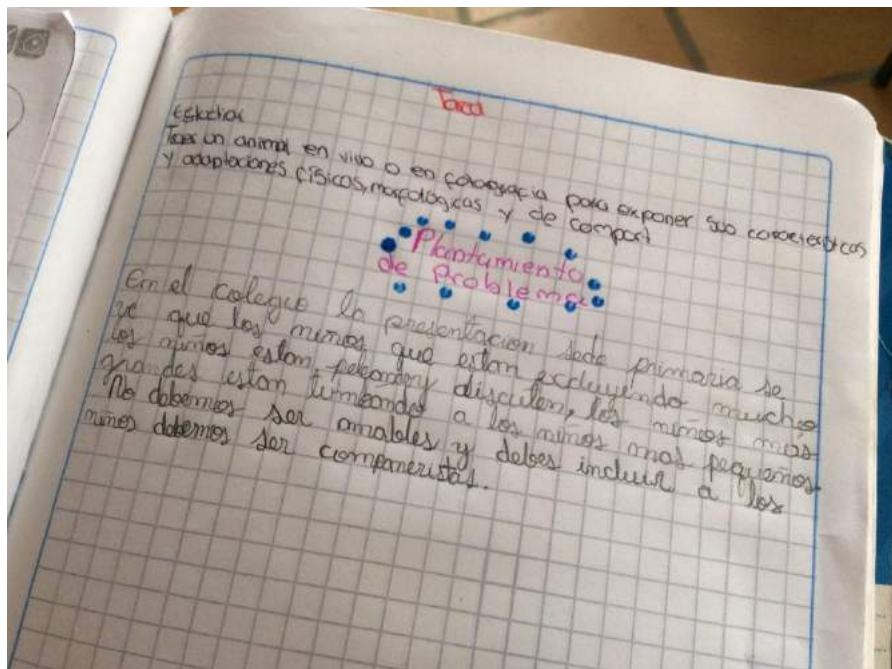 Tarea
Estudiar
Traer un animal en vivo o en fotografia para exponer sus caracteristicas
y adaptaciones físicas, morfologicas y de comport
Plantamiento
de problema
En el colegio la presentacion sede primaria se
ve que los niños que estan excluyendo mucho
los niños estan peleando y discuten, los niños mas
grandes estan tumbando a los niños mas pequeños
No debemos ser amables y debes incluir a los
niños debemos ser compañeristas.